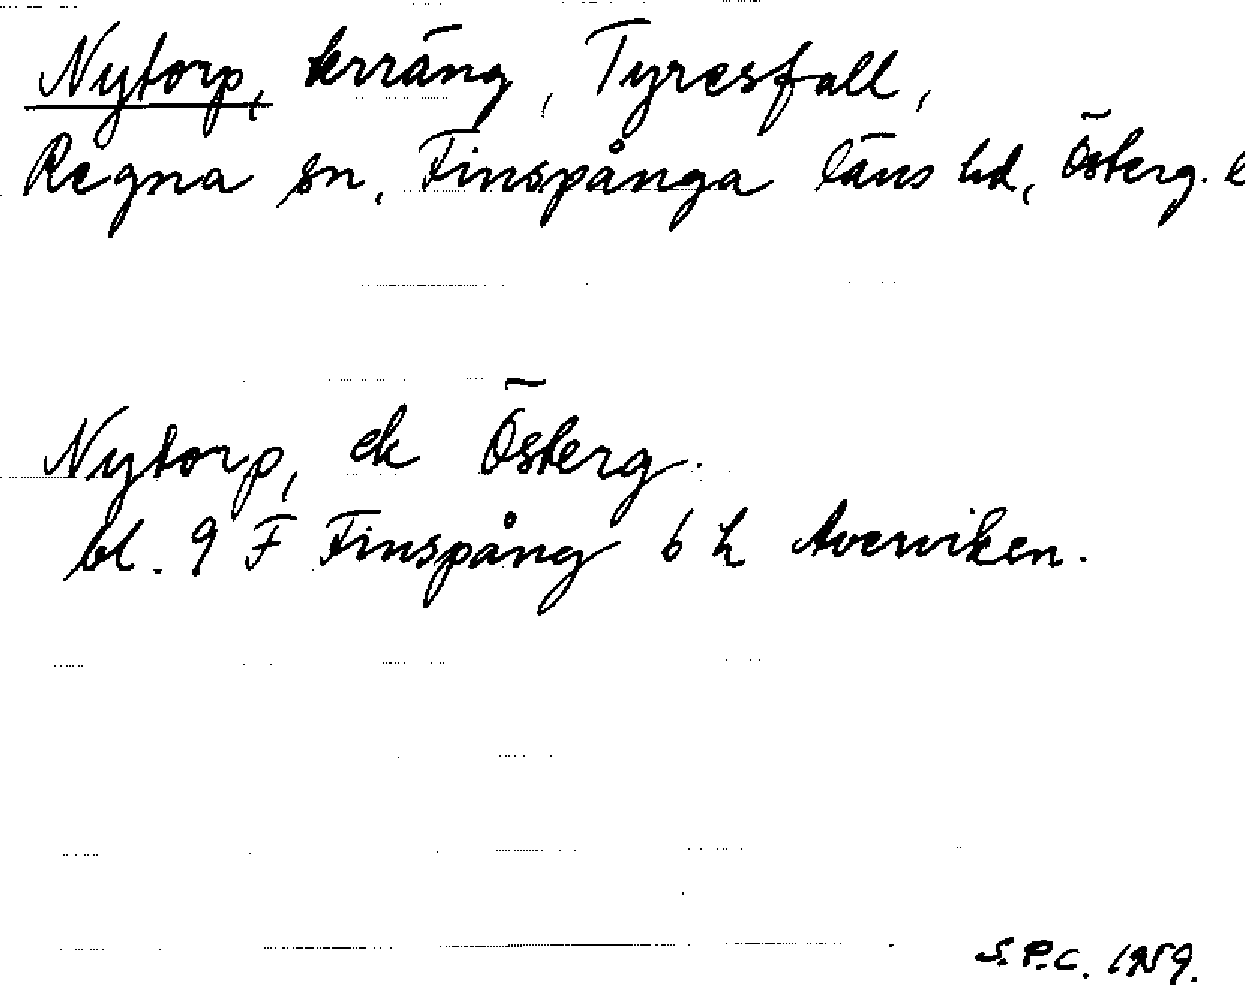 Nytorp, terräng, Tyresfall,
Regna sn, Finspånga läns hd, Österg. l
Nytorp, ek Österg.
bl. 9 F Finspång 6 h Averviken.
S.P.C. 1959.